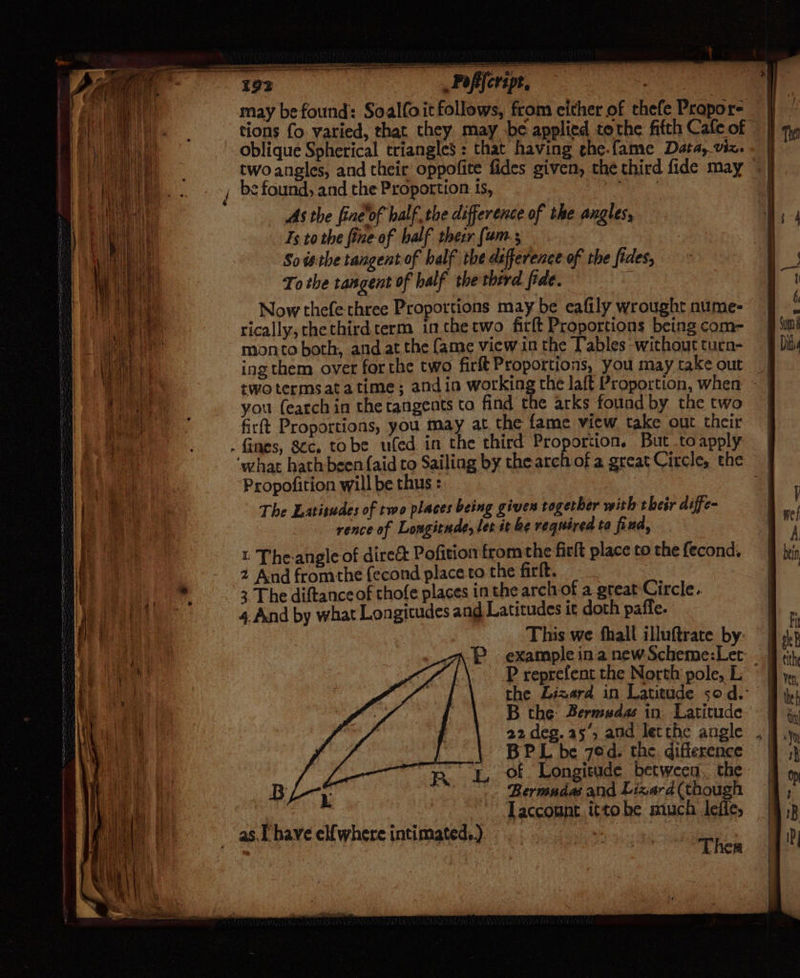 192 Postscript.
may be found: So also it follows, from either of these Propor-
tions so varied, that they may be applied to the fifth Case of
oblique Spherical triangles: that having the same Data, viz.
two angles, and their opposite sides given, the third side may
be found, and the Proportion is,
As the sine of half the difference of the angles,
Is to the sine of half their sum;
So is the tangent of half the difference of the sides,
To the tangent of half the third side.
Now these three Proportions may be easily wrought nume-
rically, the third term in the two first Proportions being com-
mon to both, and at the same view in the Tables without turn-
ing them over for the two first Proportions, you may take out
two terms at a time; and in working the last Proportion, when
you search in the tangents to find the arks found by the two
first Proportions, you may at the same view take out their
sines, &c. to be used in the third Proportion. But to apply
what hath been said to Sailing by the arch of a great Circle, the
Proposition will be thus:
The Latitudes of two places being given together with their diffe-
rence of Longitude, let it be required to find,
1 The angle of direct Position from the first place to the second.
2 And from the second place to the first.
3 The distance of those places in the arch of a great Circle.
4 And by what Longitudes and Latitudes it doth passe.
This we shall illustrate by
P example in a new Scheme: Let
P represent the North pole, L
the Lizard in Latitude 50 d.
B the Bermudas in Latitude
22 deg. 25', and let the angle
BPL be 70d. the difference
R L of Longitude between the
B Bermudas and Lizard (though
I account it to be much lesse,
as I have elswhere intimated.)
Then